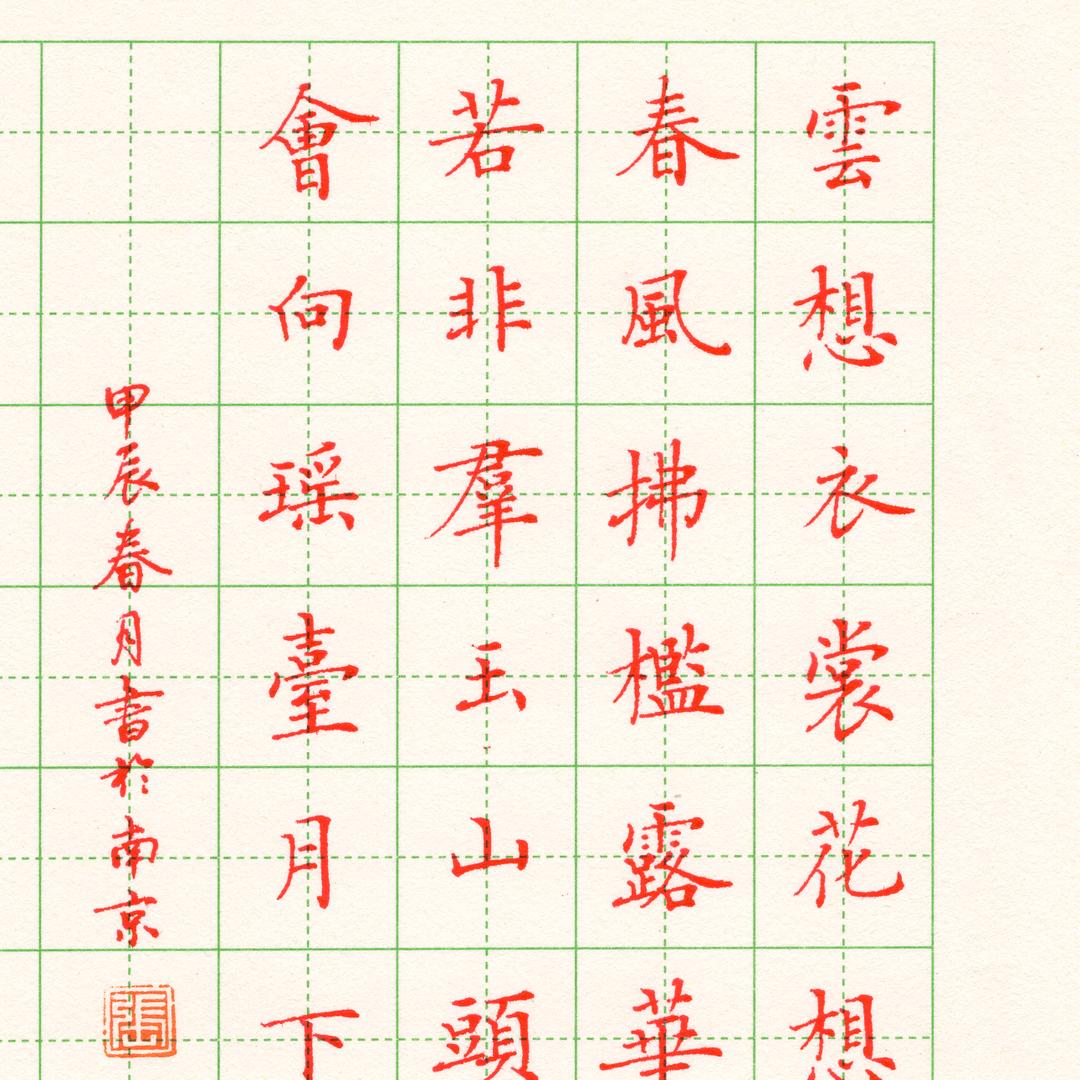 雲想衣裳花想
春風拂檻露華
若非羣玉山頭
會向瑶臺月下
甲辰春月書於南京